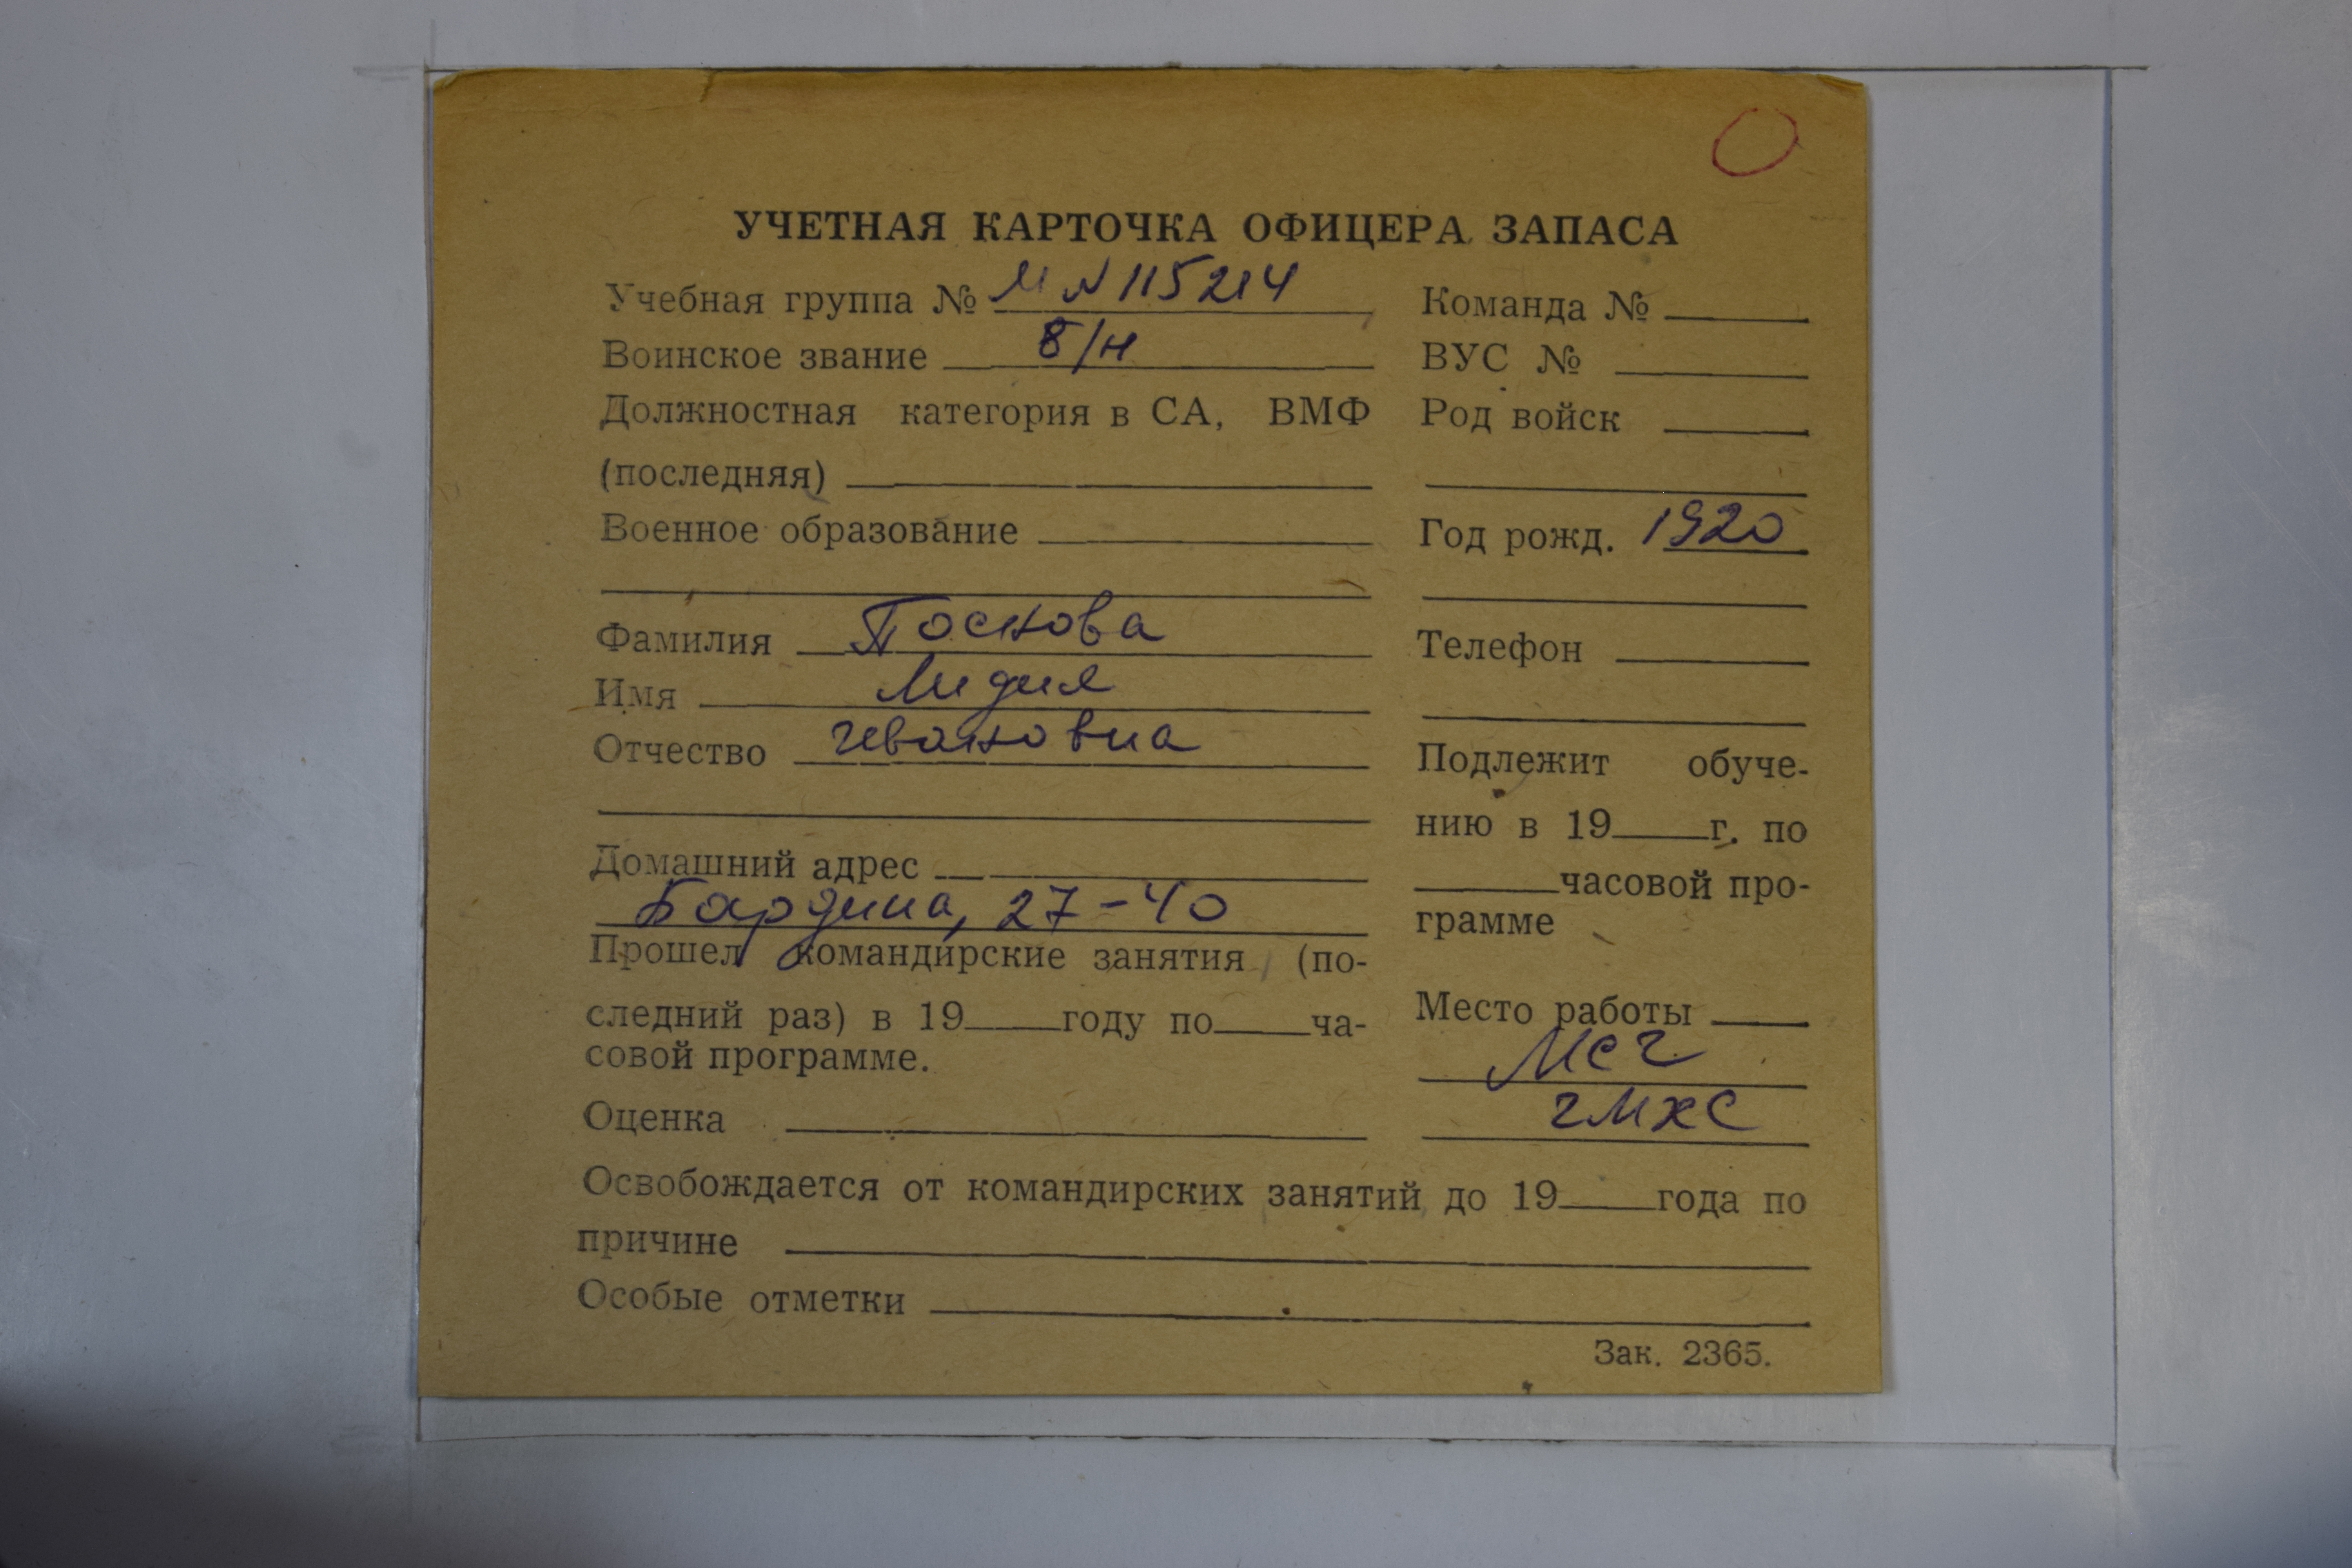 УЧЕТНАЯ КАРТОЧКА ОФИЦЕРА ЗАПАСА
Учебная группа № М N 115214
Воинское звание в/н
Должностная категория в СА, ВМФ
(последняя)
Военное образование
Фамилия Поскова
Имя Лидия
Отчество Ивановна
Домашний адрес
Бардина, 27-40
Прошел командирские занятия (по-
следний раз) в 19 году по ча-
совой программе.
Оценка
Команда №
ВУС №
Род войск
Год рожд. 1920
Телефон
Подлежит обуче-
нию в 19 г. по
часовой про-
грамме
Место работы
МСЧ
ЧМХС
Освобождается от командирских занятий до 19 года по
причине
Особые отметки
Зак. 2365.